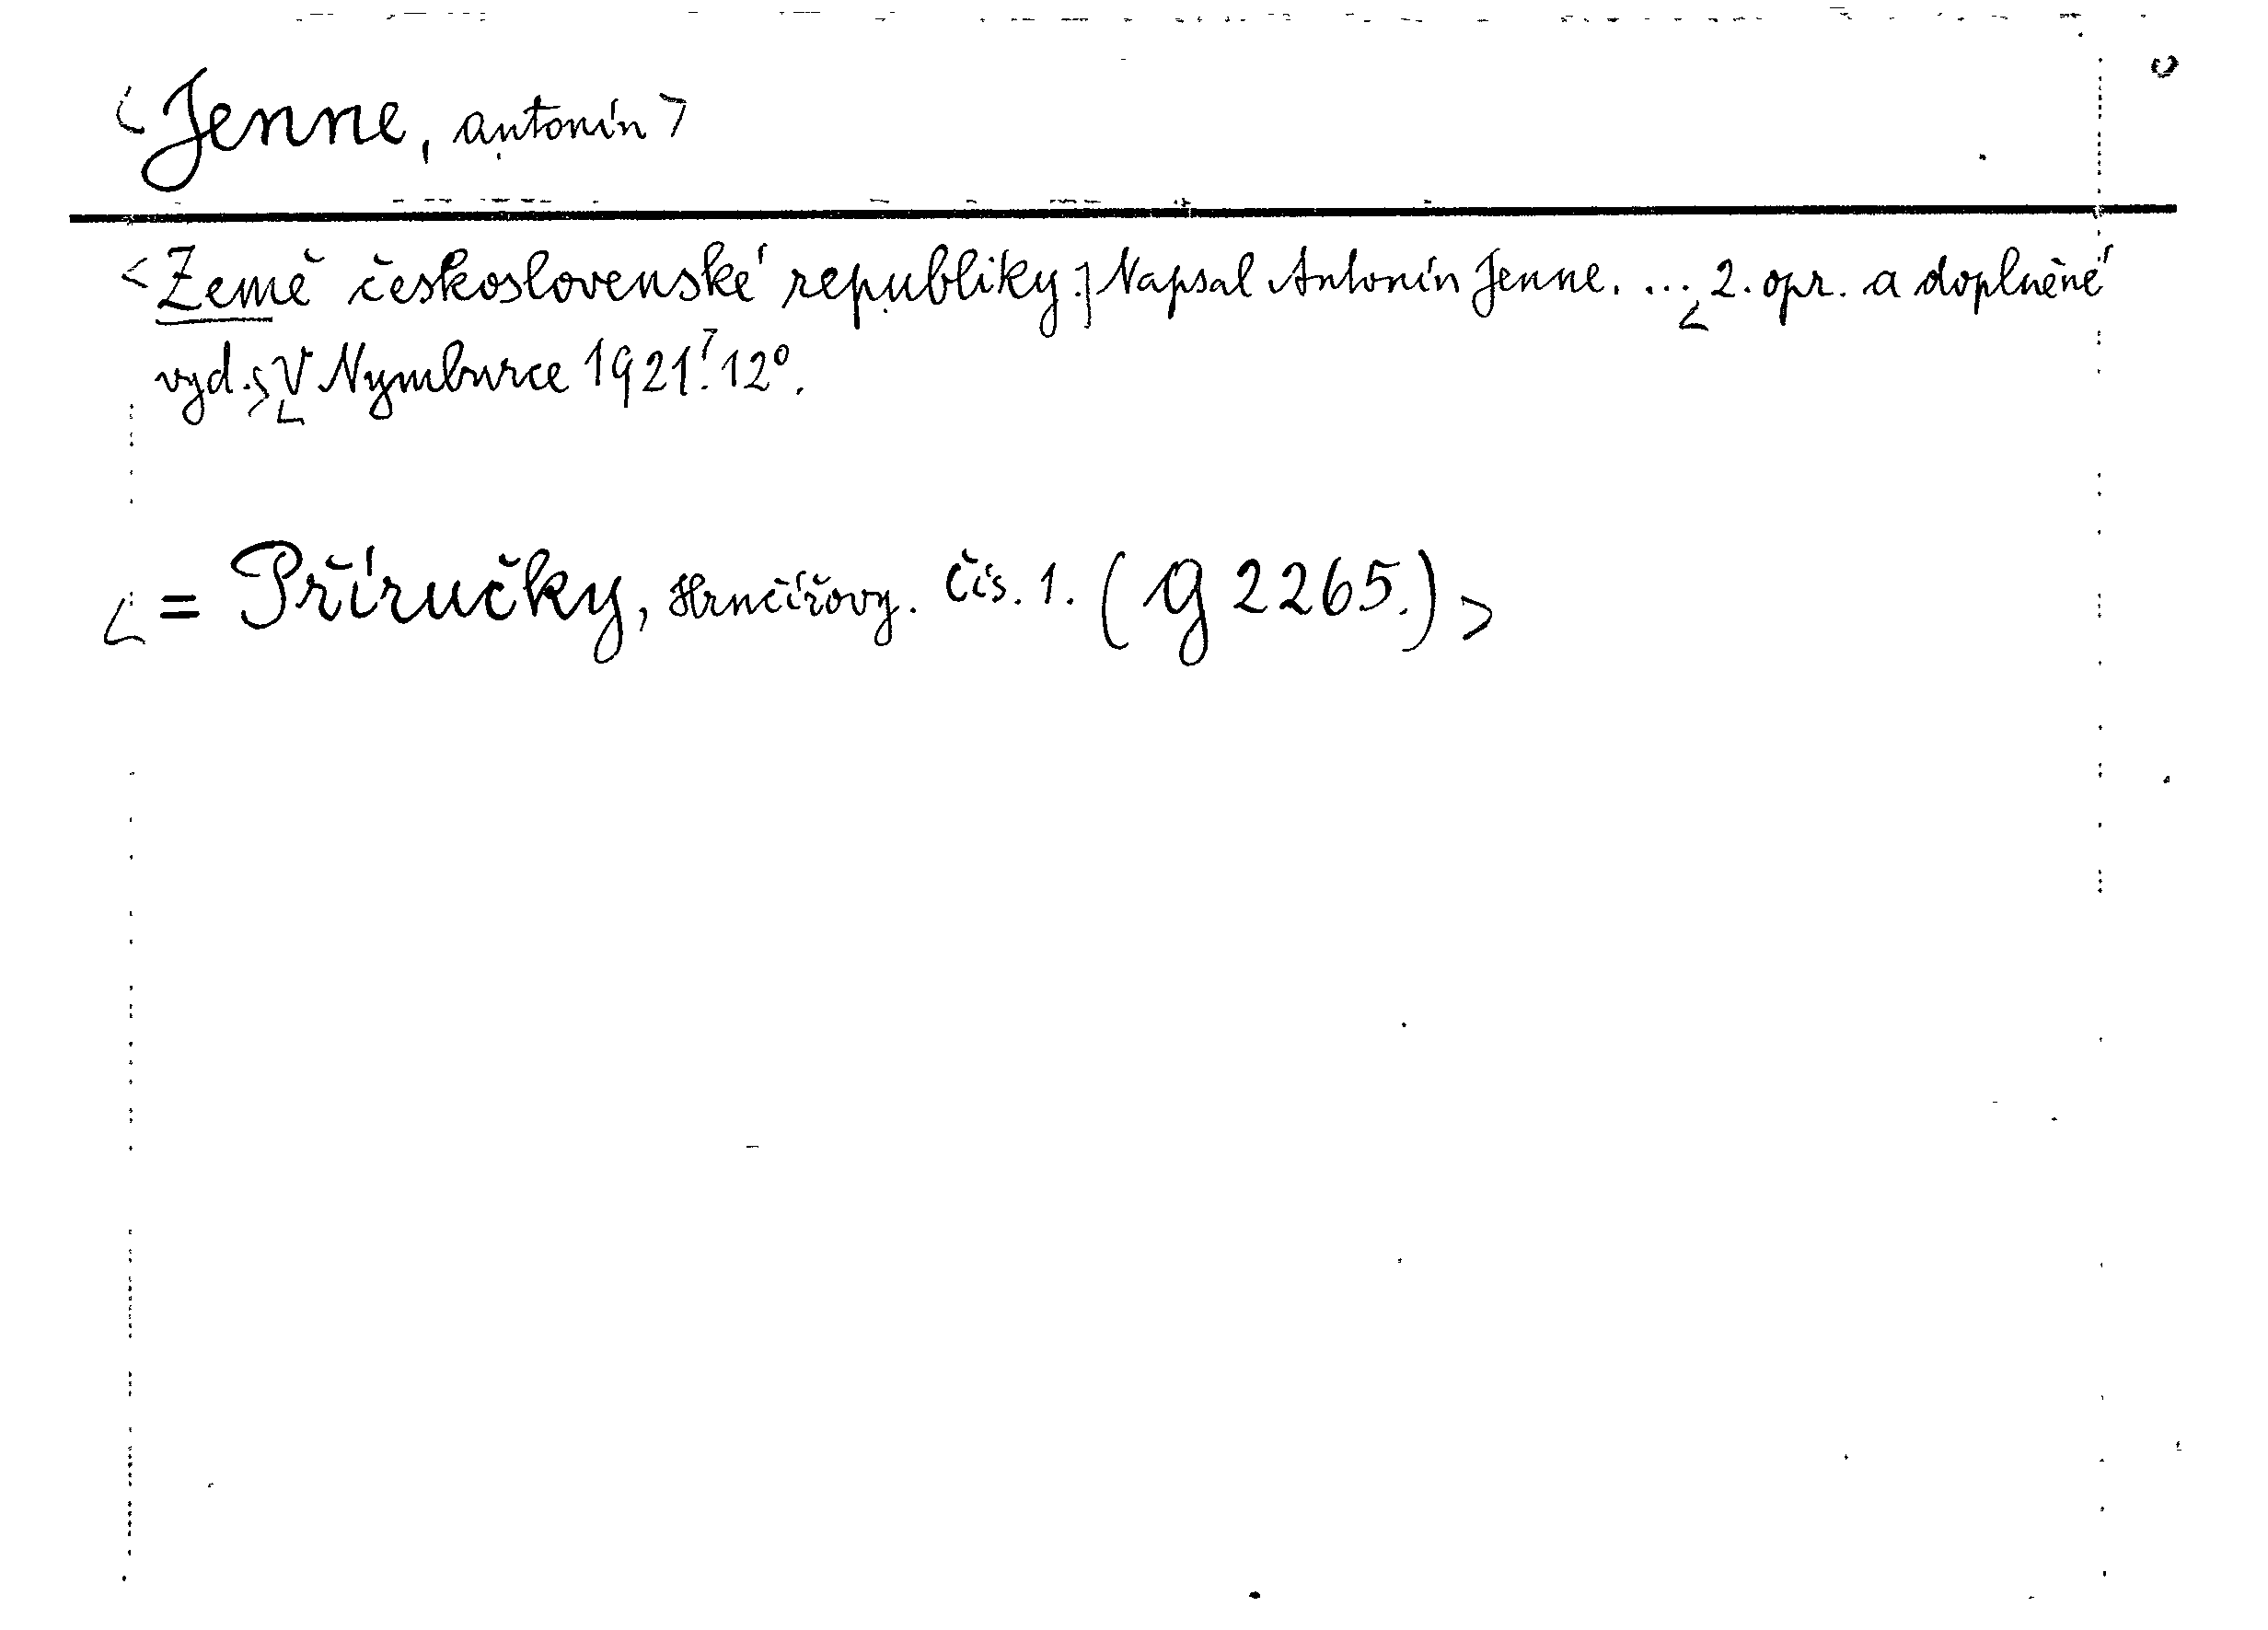 <Jenne, Antonín>
<Země československé republiky.] Napsal Antonín Jenne. ... <2. opr. a doplněné
vyd.> <V Nymburce 1921.> 12°.
<= Příručky, Hrnčířovy. Čís. 1. (G 2265.)>